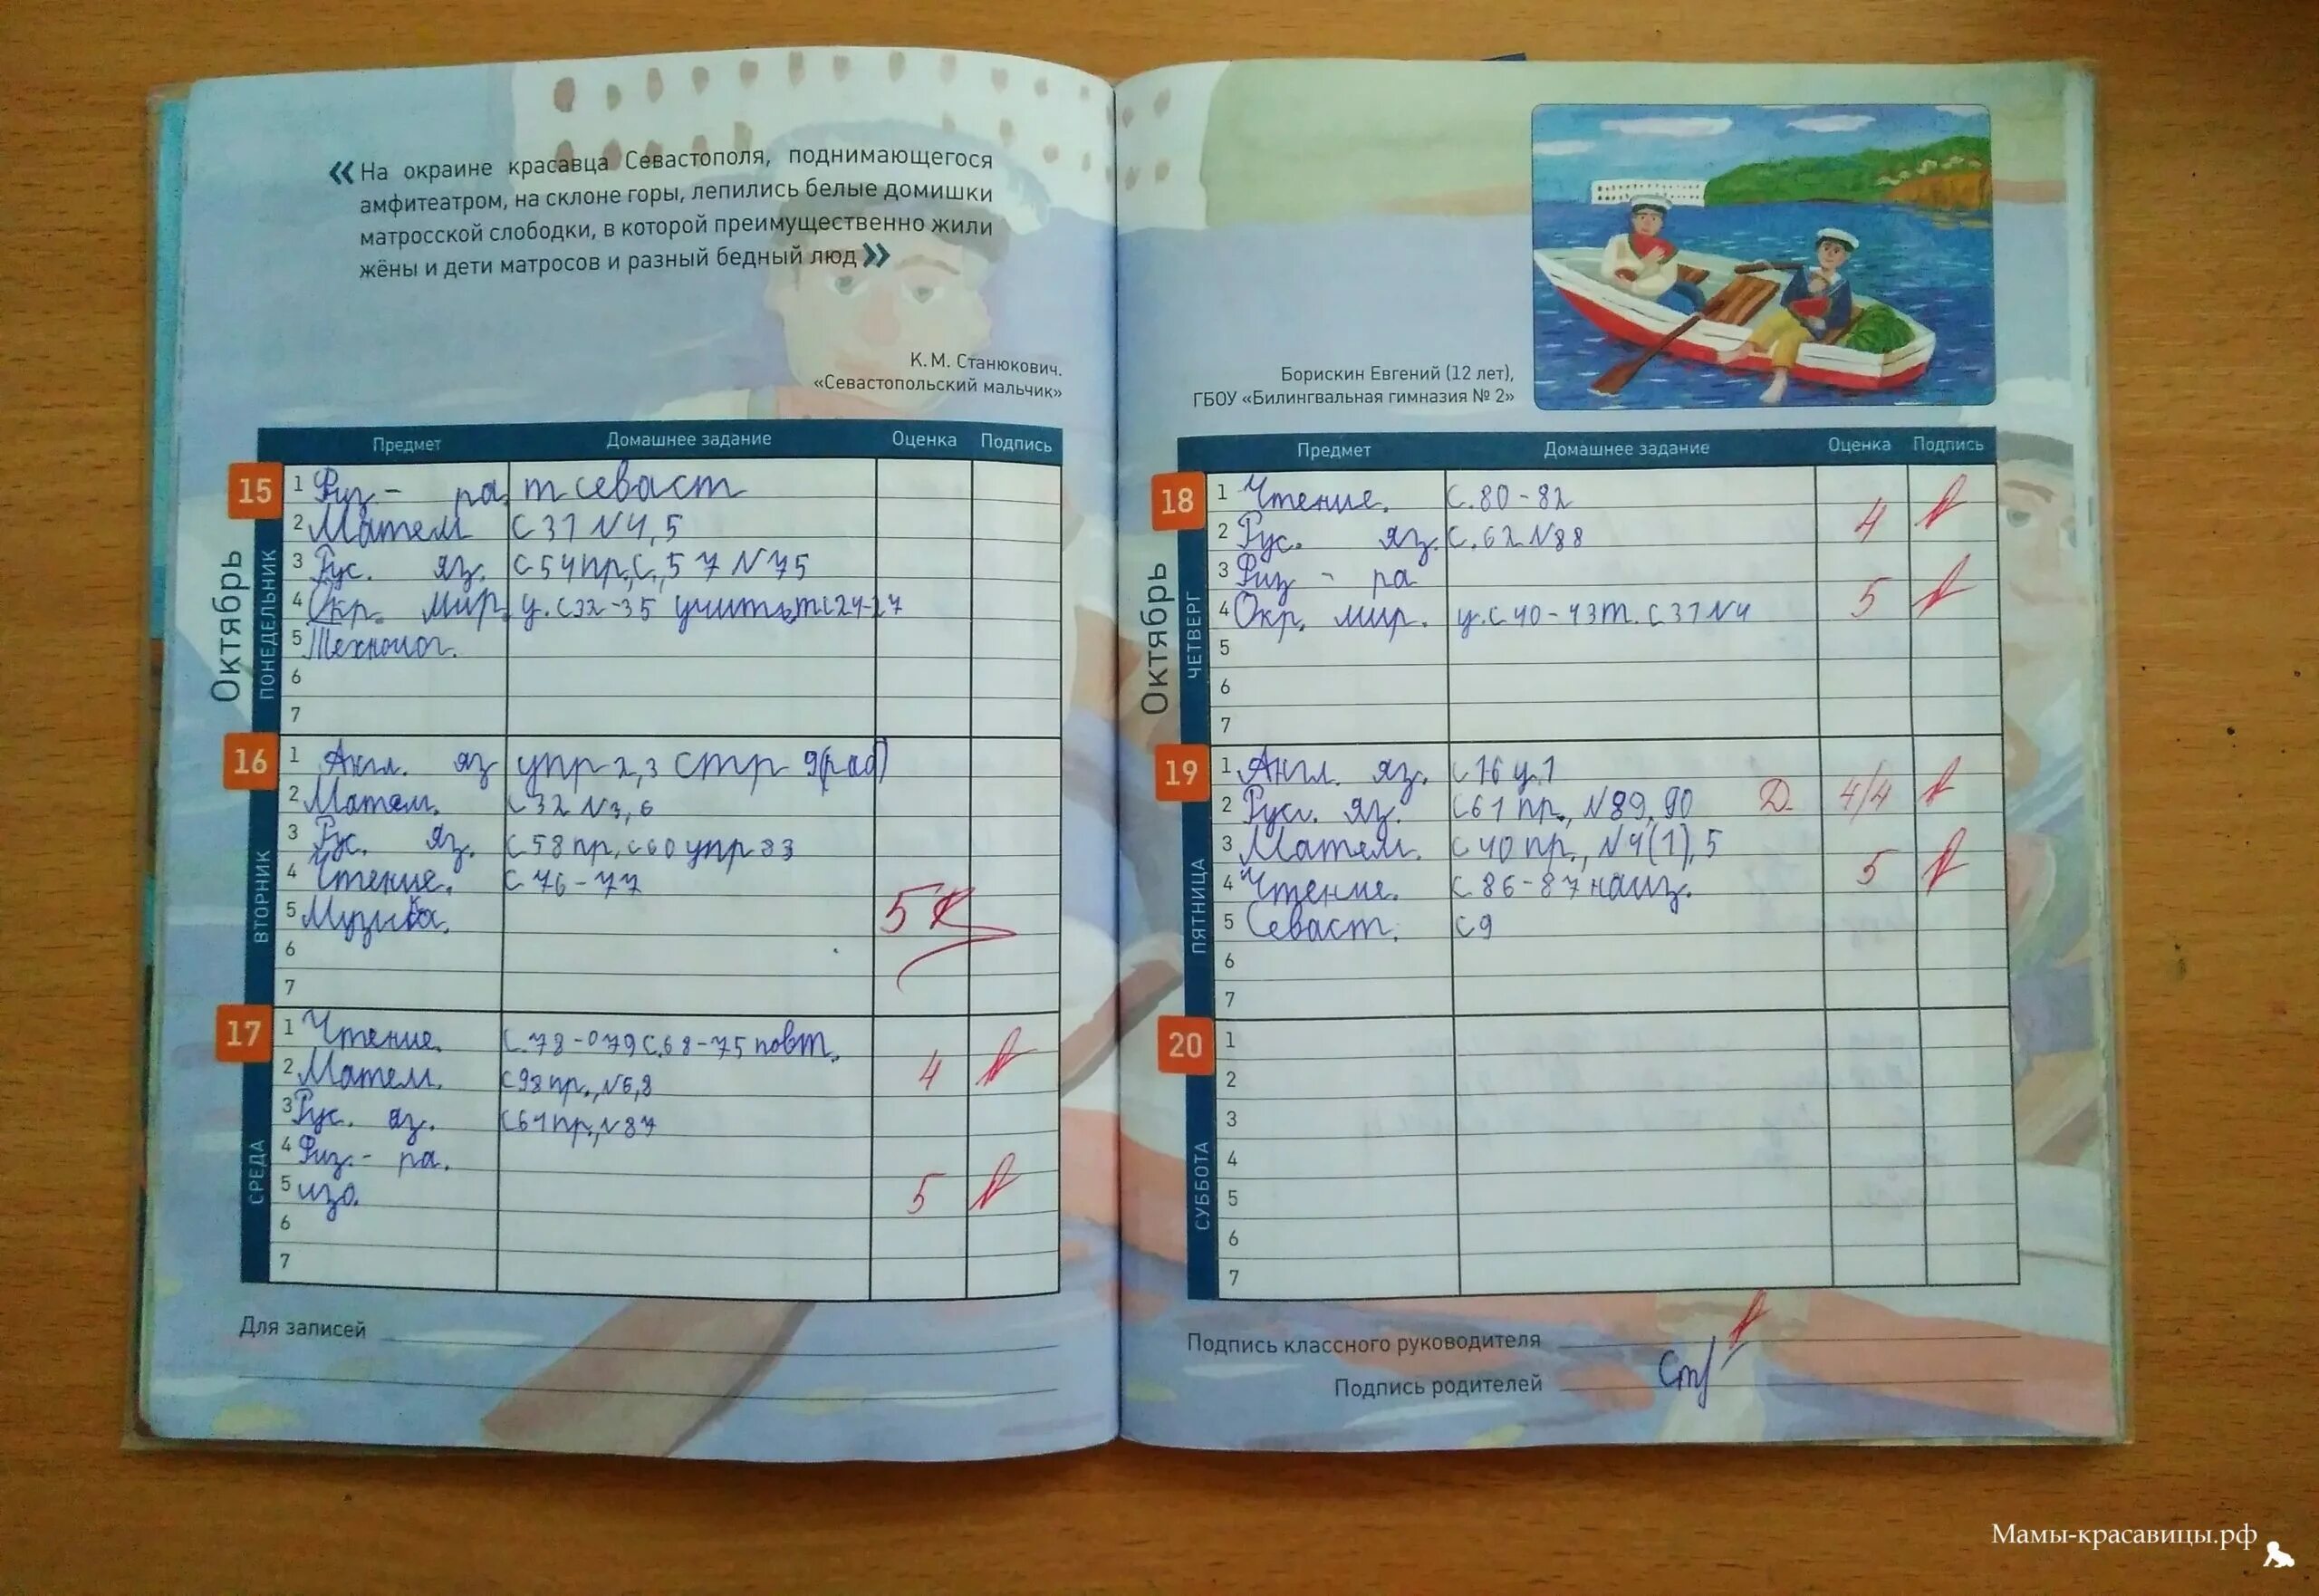 « На окраине красавца Севастополя, поднимающегося
амфитеатром, на склоне горы, лепились белые домишки
матросской слободки, в которой преимущественно жили
жёны и дети матросов и разный бедный люд »
К. М. Станюкович.
«Севастопольский мальчик»
Предмет Домашнее задание Оценка Подпись
Октябрь
15
ПОНЕДЕЛЬНИК
1 Физ - ра т севаст
2 Матем С 31 №4,5
3 Рус. яз. С 54 пр, С, 57 №75
4 Окр. мир. у. С32-35 учить, т с 24-27
5 Технолог.
6
7
16
ВТОРНИК
1 Англ. яз упр 2,3 стр 9(раб)
2 Матем. С 32 №3,6
3 Рус. яз. С 58 пр, с 60 упр 83
4 Чтение. С 76-77
5 Музыка. 5
6
7
17
СРЕДА
1 Чтение. С. 78-079 С. 68-75 повт.
2 Матем. С 98 пр., №6,8 4
3 Рус. яз. С 61 пр., №87
4 Физ. - ра.
5 изо. 5
6
7
Для записей
Борискин Евгений (12 лет),
ГБОУ «Билингвальная гимназия № 2»
Предмет Домашнее задание Оценка Подпись
Октябрь
18
ЧЕТВЕРГ
1 Чтение. С. 80-82
2 Рус. яз. С. 62 №88 4
3 Физ - ра
4 Окр. мир. у. С 40-43 т. С 31 №4 5
5
6
7
19
ПЯТНИЦА
1 Англ. яз. С 16 у.1
2 Русс. яз. С 61 пр., №89, 90 Д. 4/4
3 Матем. С 40 пр., №4(1), 5
4 Чтение. С. 86-87 наиз. 5
5 Севаст. С 9
6
7
20
СУББОТА
1
2
3
4
5
6
7
Подпись классного руководителя
Подпись родителей
Мамы-красавицы.рф